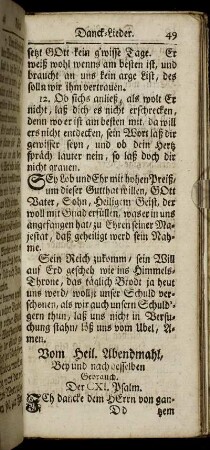 Danck-Lieder. 49
setzt GOtt kein g'wisse Tage. Er
weiß wohl wenns am besten ist, und
braucht an uns kein arge List, des
solln wir ihm vertrauen.
12. Ob sichs anließ, als wolt Er
nicht, laß dich es nicht erschrecken,
denn wo er ist am besten mit, da will
ers nicht entdecken, sein Wort laß dir
gewisser seyn, und ob dein Hertz
spräch lauter nein, so laß doch dir
nicht grauen.
SEy Lob und Ehr mit hohen Preiß,
um dieser Gutthat willen, GOtt
Vater, Sohn, Heiligem Geist, der
woll mit Gnad erfüllen, was er in uns
angefangen hat, zu Ehren seiner Ma-
jestat, daß geheiligt werd sein Nah-
me.
Sein Reich zukomm, sein Will
auf Erd gescheh wie ins Himmels-
Throne, das täglich Brodt ja heut
uns werd, wollst unser Schuld ver-
schonen, als wir auch unsern Schuld'-
gern thun, laß uns nicht in Versu-
chung stahn, löß uns vom Ubel, A-
men.
Vom Heil. Abendmahl,
Bey und nach desselben
Gebrauch.
Der CXI. Psalm.
JCh dancke dem HErrn von gan-
Dd tzem